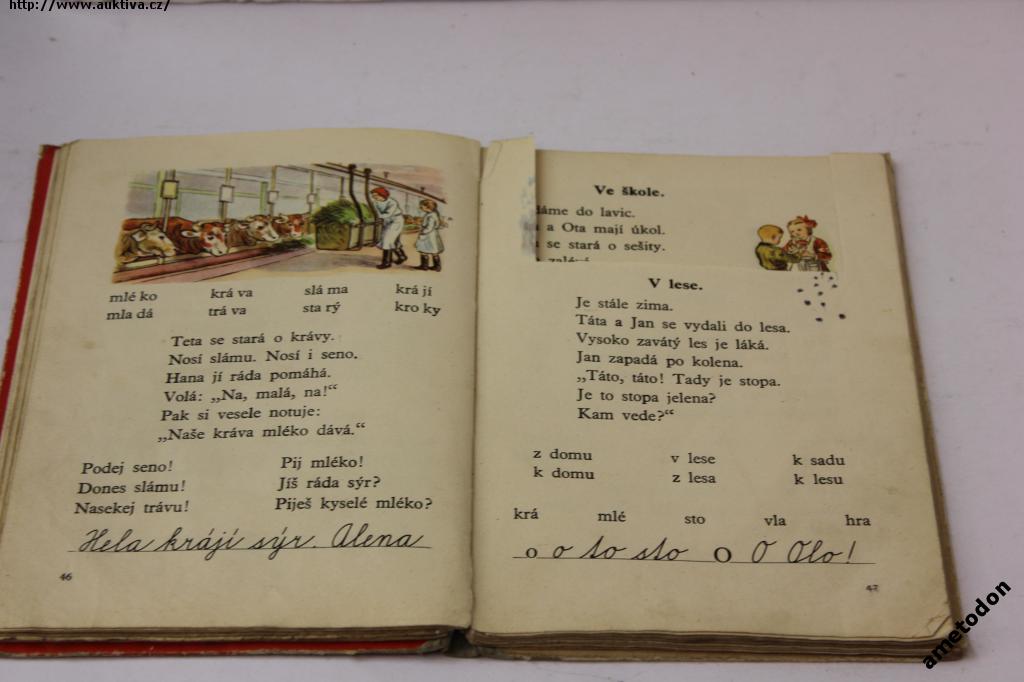 http://www.auktiva.cz/
mlé ko krá va slá ma krá jí
mla dá trá va sta rý kro ky
Teta se stará o krávy.
Nosí slámu. Nosí i seno.
Hana jí ráda pomáhá.
Volá: „Na, malá, na!“
Pak si vesele notuje:
„Naše kráva mléko dává.“
Podej seno! Pij mléko!
Dones slámu! Jíš ráda sýr?
Nasekej trávu! Piješ kyselé mléko?
Hela krájí sýr. Alena
46
Ve škole.
do lavic.
a Ota mají úkol.
se stará o sešity.
V lese.
Je stále zima.
Táta a Jan se vydali do lesa.
Vysoko zavátý les je láká.
Jan zapadá po kolena.
„Táto, táto! Tady je stopa.
Je to stopa jelena?
Kam vede?“
z domu v lese k sadu
k domu z lesa k lesu
krá mlé sto vla hra
o o to sto O O Olo!
47
ametodon